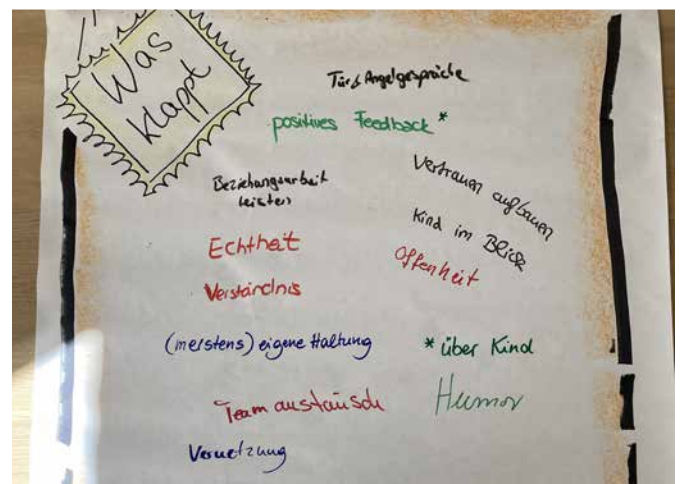 Was
klappt
Tür & Angelgespräche
positives Feedback *
Beziehungsarbeit
leisten
Vertrauen aufbauen
Kind im Blick
Echtheit
Offenheit
Verständnis
(meistens) eigene Haltung
* über Kind
Teamaustausch
Humor
Vernetzung